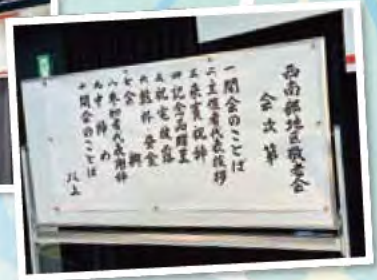 西南部地区敬老会
会次第
一開会のことば
二主催者代表挨拶
三来賓祝辞
四記念品贈呈
五祝宅披露
六懇外発会
七会
八参加者代表謝辞
九中締め
十閉会のことば
以上